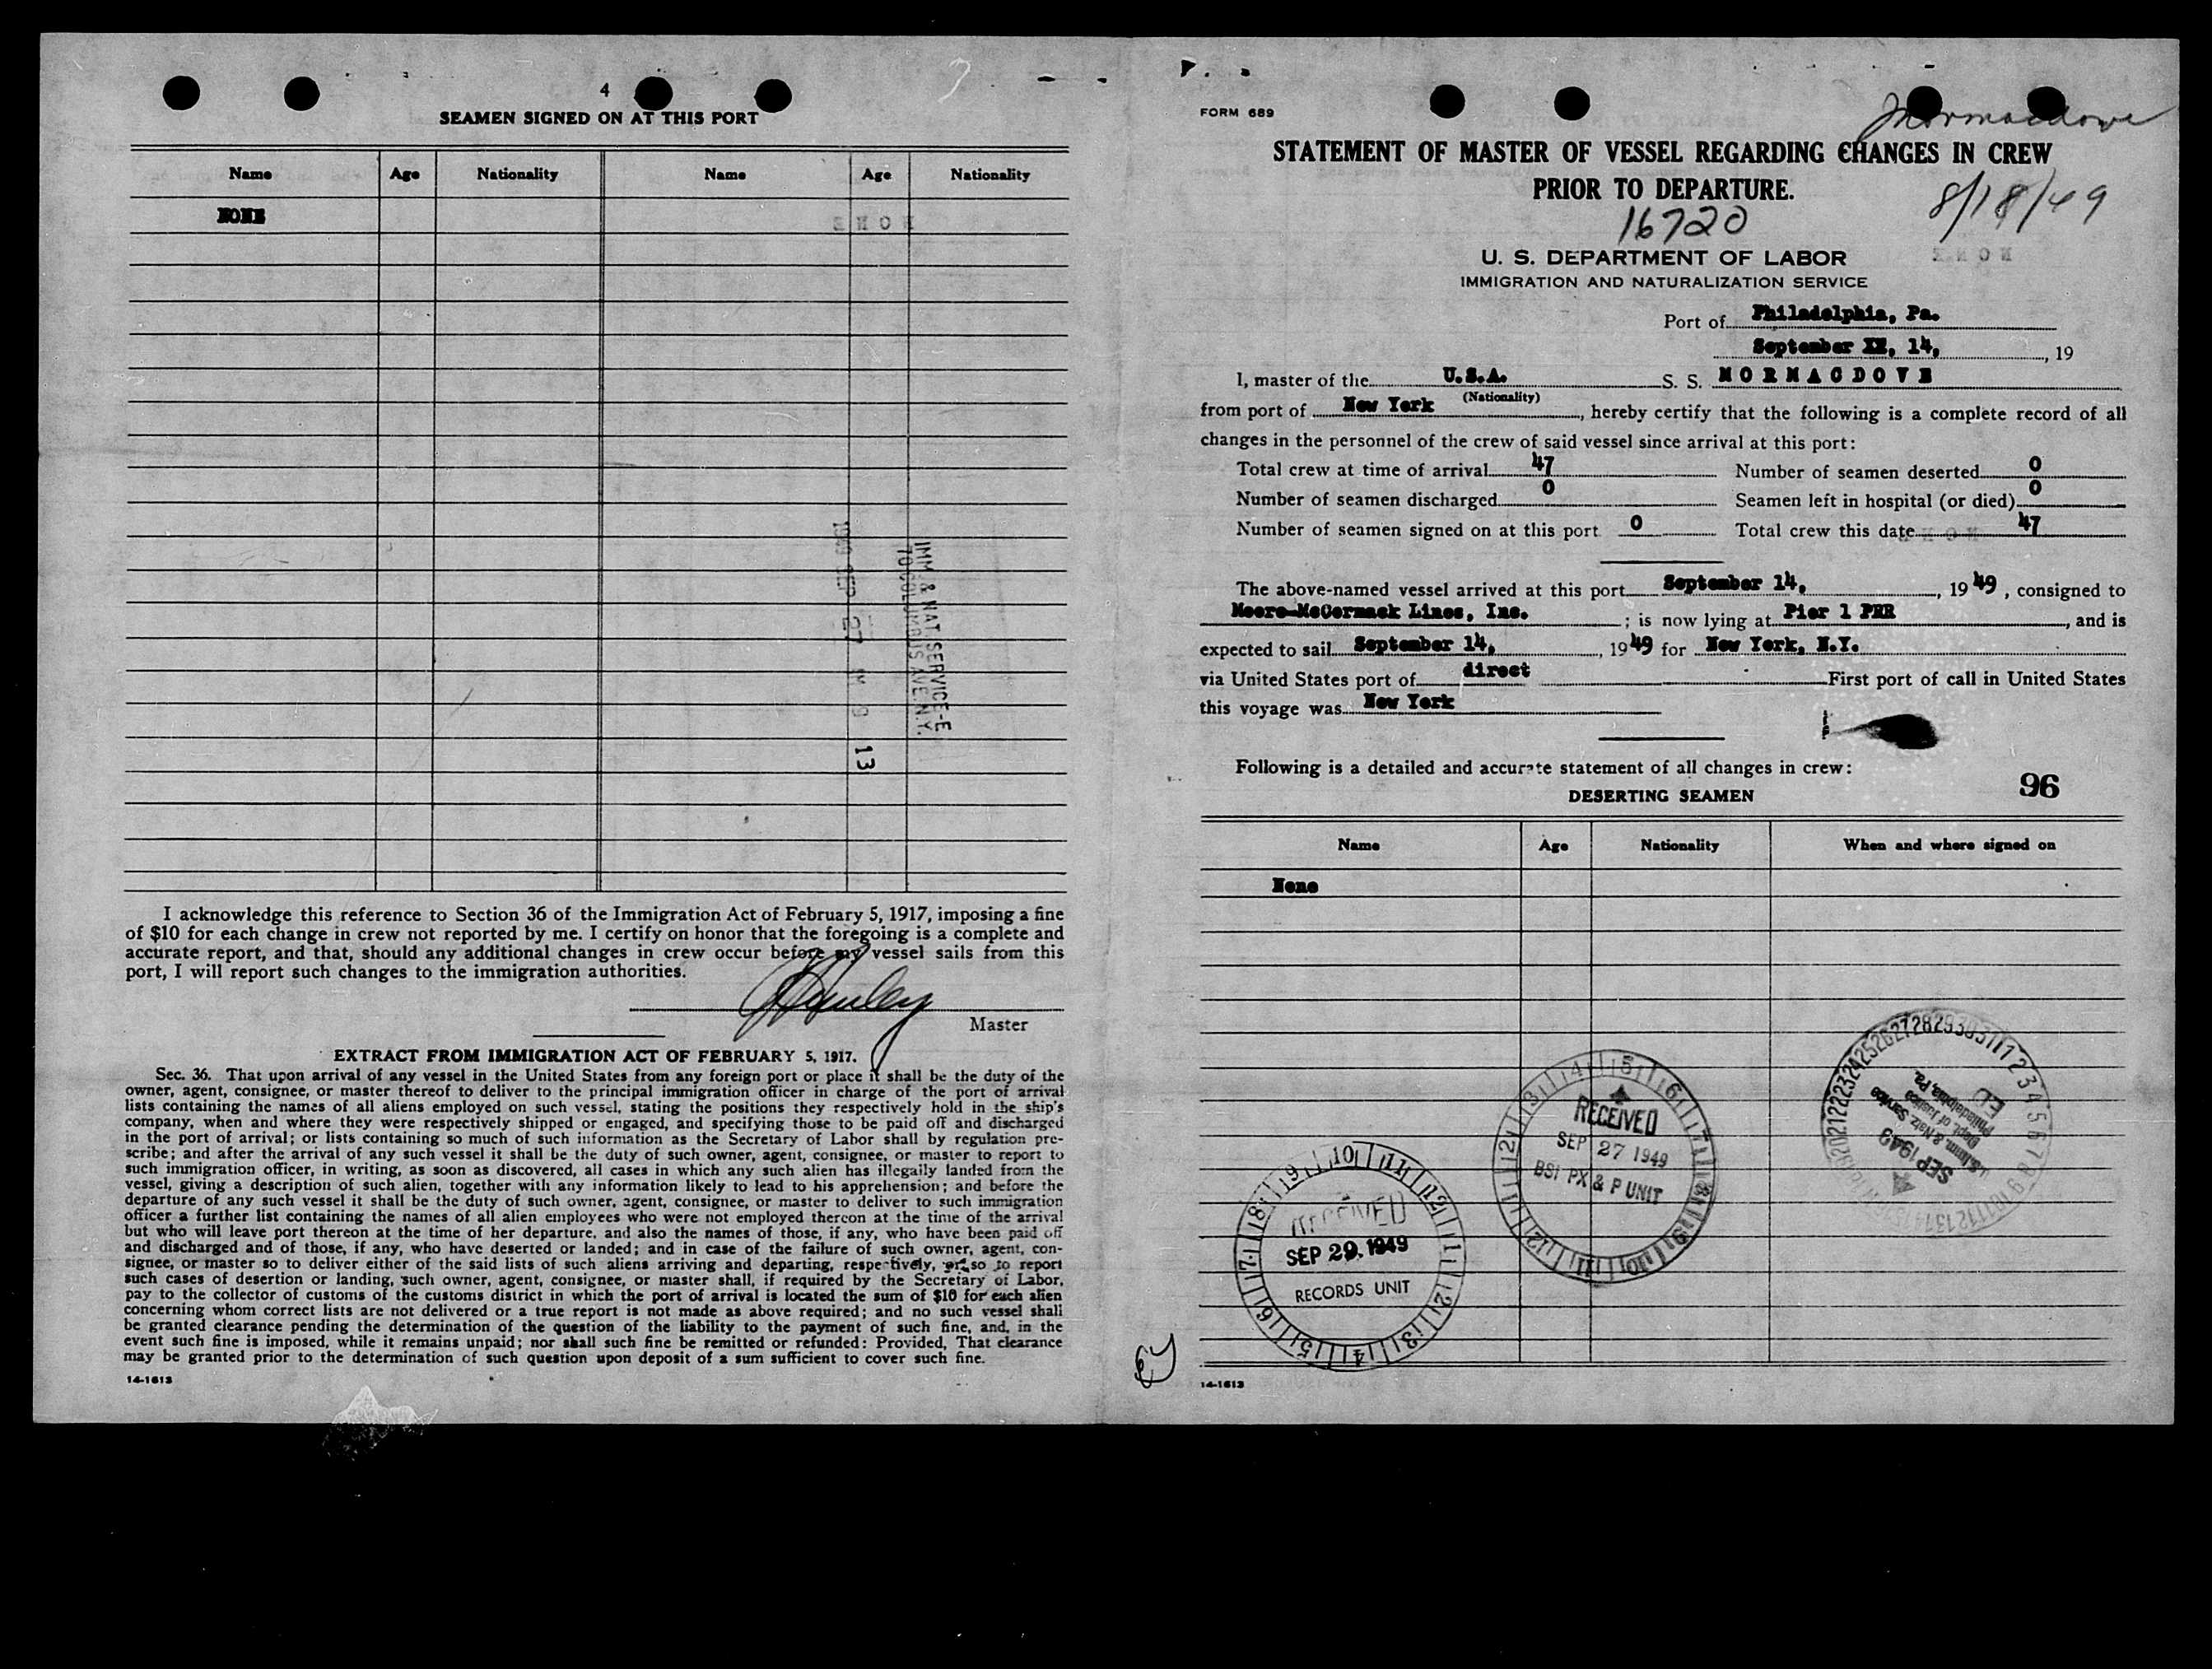 4
SEAMEN SIGNED ON AT THIS PORT
Name Age Nationality Name Age Nationality
NONE
1949 SEP 27 9 13
IMM & NAT SERVICE-E
70 COLUMBUS AVE N.Y.
I acknowledge this reference to Section 36 of the Immigration Act of February 5, 1917, imposing a fine
of $10 for each change in crew not reported by me. I certify on honor that the foregoing is a complete and
accurate report, and that, should any additional changes in crew occur before my vessel sails from this
port, I will report such changes to the immigration authorities.
Master
EXTRACT FROM IMMIGRATION ACT OF FEBRUARY 5, 1917.
Sec. 36. That upon arrival of any vessel in the United States from any foreign port or place it shall be the duty of the
owner, agent, consignee, or master thereof to deliver to the principal immigration officer in charge of the port of arrival
lists containing the names of all aliens employed on such vessel, stating the positions they respectively hold in the ship's
company, when and where they were respectively shipped or engaged, and specifying those to be paid off and discharged
in the port of arrival; or lists containing so much of such information as the Secretary of Labor shall by regulation pre-
scribe; and after the arrival of any such vessel it shall be the duty of such owner, agent, consignee, or master to report to
such immigration officer, in writing, as soon as discovered, all cases in which any such alien has illegally landed from the
vessel, giving a description of such alien, together with any information likely to lead to his apprehension; and before the
departure of any such vessel it shall be the duty of such owner, agent, consignee, or master to deliver to such immigration
officer a further list containing the names of all alien employees who were not employed thereon at the time of the arrival
but who will leave port thereon at the time of her departure, and also the names of those, if any, who have been paid off
and discharged and of those, if any, who have deserted or landed; and in case of the failure of such owner, agent, con-
signee, or master so to deliver either of the said lists of such aliens arriving and departing, respectively, or so to report
such cases of desertion or landing, such owner, agent, consignee, or master shall, if required by the Secretary of Labor,
pay to the collector of customs of the customs district in which the port of arrival is located the sum of $10 for each alien
concerning whom correct lists are not delivered or a true report is not made as above required; and no such vessel shall
be granted clearance pending the determination of the question of the liability to the payment of such fine, and, in the
event such fine is imposed, while it remains unpaid; nor shall such fine be remitted or refunded: Provided, That clearance
may be granted prior to the determination of such question upon deposit of a sum sufficient to cover such fine.
14-1613
FORM 689
Mormacdove
STATEMENT OF MASTER OF VESSEL REGARDING CHANGES IN CREW
PRIOR TO DEPARTURE.
16720
8/18/49
U. S. DEPARTMENT OF LABOR
IMMIGRATION AND NATURALIZATION SERVICE
Port of Philadelphia, Pa.
September XX, 14, , 19
I, master of the U.S.A. S. S. MORMACDOVE
(Nationality)
from port of New York , hereby certify that the following is a complete record of all
changes in the personnel of the crew of said vessel since arrival at this port:
Total crew at time of arrival 47 Number of seamen deserted 0
Number of seamen discharged 0 Seamen left in hospital (or died) 0
Number of seamen signed on at this port 0 Total crew this date 47
The above-named vessel arrived at this port September 14, , 1949 , consigned to
Moore-McCormack Lines, Inc. ; is now lying at Pier 1 PRR , and is
expected to sail September 14, , 1949 for New York, N.Y.
via United States port of direct First port of call in United States
this voyage was New York
Following is a detailed and accurate statement of all changes in crew:
96
DESERTING SEAMEN
Name Age Nationality When and where signed on
None
RECEIVED
SEP 27 1949
BSI PX & P UNIT
RECEIVED
SEP 29 1949
RECORDS UNIT
SEP 1949
U.S. Imm. & Natz. Service
Dept. of Justice
Philadelphia, Pa.
14-1613